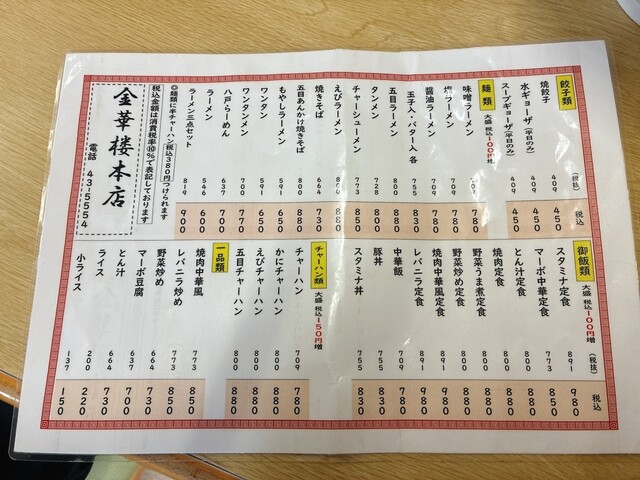 餃子類 (税抜) 税込
焼餃子 409 450
水ギョーザ(平日のみ) 409 450
スープギョーザ(平日のみ) 409 450
麺類 大盛 税込100円増
味噌ラーメン 709 780
塩ラーメン 780
醤油ラーメン 709 780
玉子入・バター入 各 755 830
五目ラーメン 800 880
タンメン 728 800
チャーシューメン 773 850
えびラーメン 800 880
焼きそば 664 730
五目あんかけ焼きそば 800 880
もやしラーメン 591 650
ワンタン 591 650
ワンタンメン 700 770
八戸らーめん 637 700
ラーメン 546 600
ラーメン三点セット 819 900
◎麺類に半チャーハン(税込380円)つけられます
税込金額は消費税率⑩%で表記しております
金華楼本店
電話 43-5554
御飯類 大盛 税込100円増 (税抜) 税込
スタミナ定食 891 980
マーボ中華定食 773 850
とん汁定食 800 880
焼肉定食 800 880
野菜うま煮定食 800 880
野菜炒め定食 800 880
焼肉中華風定食 891 980
レバニラ定食 891 980
中華飯 709 780
豚丼 755 830
スタミナ丼 755 830
チャーハン類 大盛 税込150円増
チャーハン 709 780
かにチャーハン 800 880
えびチャーハン 800 880
五目チャーハン 800 880
一品類
焼肉中華風 773 850
レバニラ炒め 773 850
野菜炒め 664 730
マーボ豆腐 637 700
とん汁 664 730
ライス 200 220
小ライス 137 150